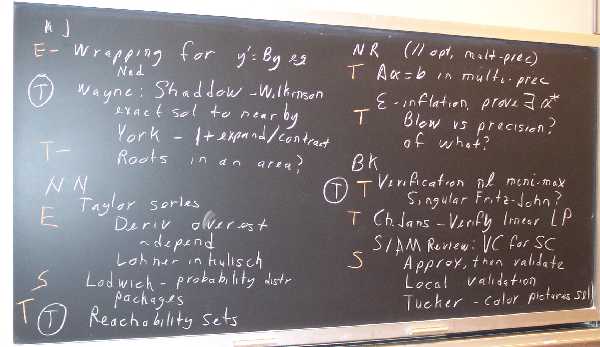 NJ
E- Wrapping for y' = By eg
Ned
T Wayne: Shaddow - Wilkinson
exact sol to nearby
York - 1+expand/contract
T- Roots in an area?
NN
E Taylor series
Deriv overest
ndepend
Lohner in hulisch
S Lodwich - probability distr
packages
T T Reachability Sets
NR (// opt, mult-prec)
T Ax=b in mult.-prec
ε-inflation, prove ∃ x*
T Blow vs precision?
of what?
BK
T T Verification nl mini-max
Singular Fritz-John?
T Ch.Jans - Verify linear LP
SIAM Review: VC for SC
S Approx, then validate
Local validation
Tucker - color pictures sell